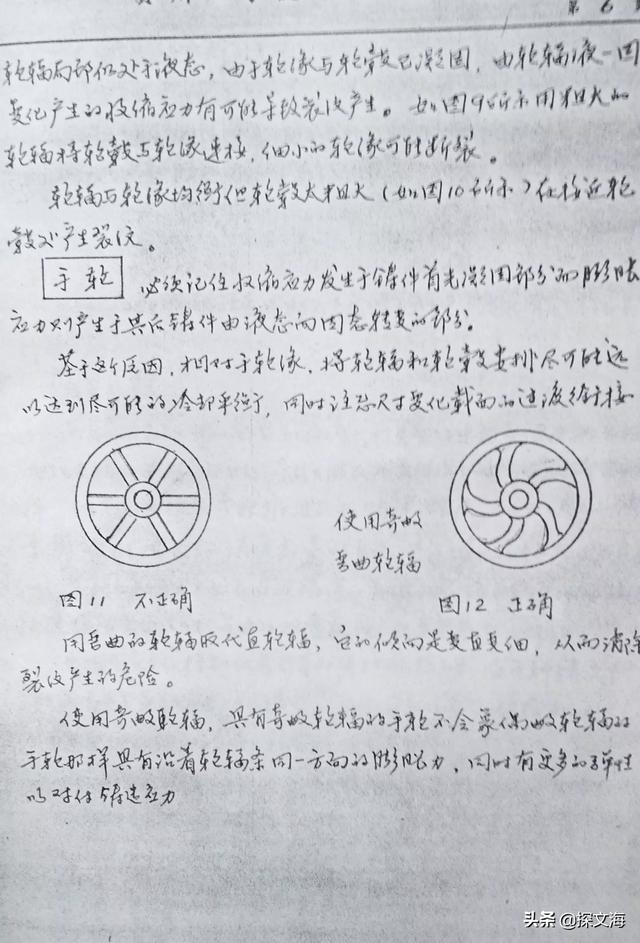 第6
轮辐局部仍处于液态，由于轮缘与轮毂已凝固，由轮辐液一固
变化产生的收缩应力有可能导致裂纹产生。如图9所示用粗大的
轮辐将轮毂与轮缘连接，细小的轮缘可能断裂。
轮辐与轮缘均衡但轮毂太粗大（如图10所示）在接近轮
毂处产生裂纹。
手轮 必须记住收缩应力发生于铸件首先凝固部分而膨胀
应力则产生于其后铸件由液态向固态转变的部分。
基于这个原因，相对于轮缘，将轮辐和轮毂安排尽可能远
以达到尽可能的冷却平衡，同时注意尺寸变化截面的过渡衔接
使用奇数
弯曲轮辐
图11 不正确
图12 正确
用弯曲的轮辐取代直轮辐，它的倾向是变直变细，从而消除
裂纹产生的危险。
使用奇数轮辐，具有奇数轮辐的手轮不会象偶数轮辐的
手轮那样具有沿着轮辐条同一方向的膨胀力，同时有更多的弹性
以对付铸造应力
头条 @探文海